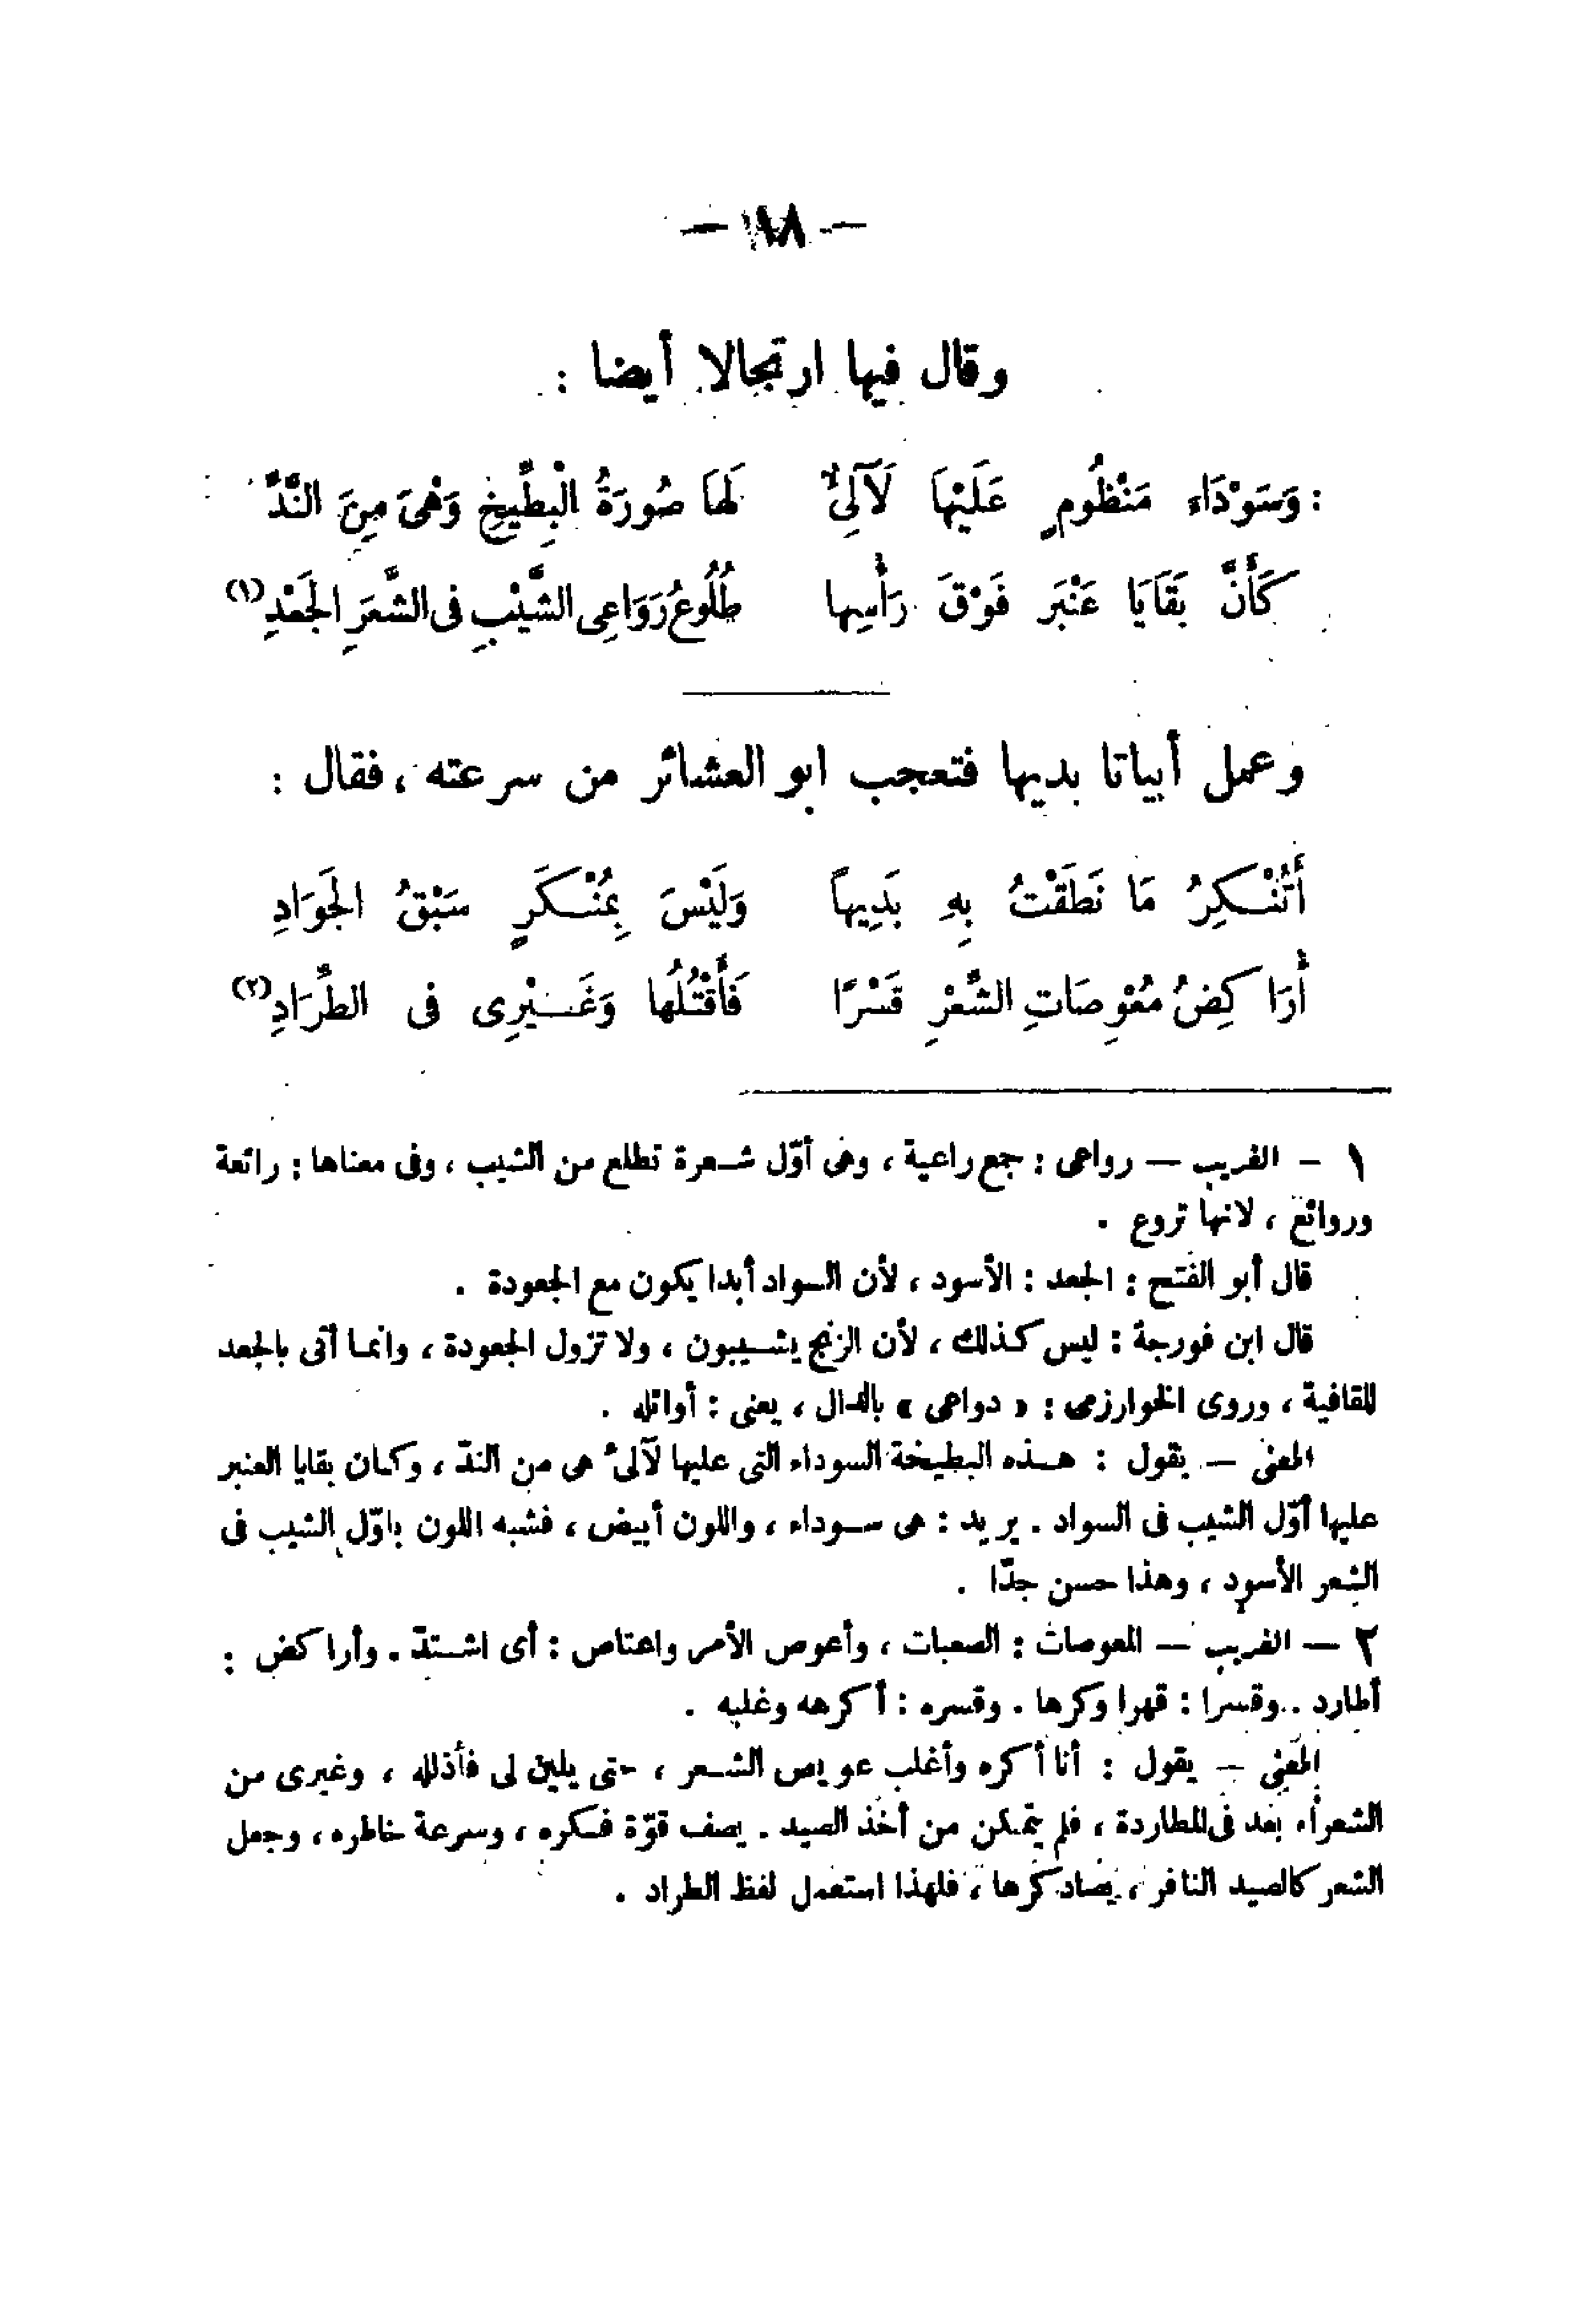 — ١٨ —
وقال فيها ارتجالا أيضا :
وَسَوْدَاء مَنْظُومٍ عَلَيْهَا لَآلِئٌ لَهَا صُورَةُ الْبِطِّيخِ وَهْىَ مِنَ النَّدِّ
كَأَنَّ بَقَايَا عَنْبَرٍ فَوْقَ رَأْسِها طُلُوعُ رَوَاعِى الشَّيْبِ فى الشَّعَرِ الجَعْدِ (١)
وعمل أبياتا بديها فتعجب ابو العشائر من سرعته ، فقال :
أَتُنْكِرُ مَا نَطَقْتُ بِهِ بَدِيهاً وَلَيْسَ بِمُنْكَرٍ سَبْقُ الجَوَادِ
أُرَاكِضُ مُعْوِصَاتِ الشِّعْرِ قَسْرًا فَأَقْتُلُها وَغَيْرِى فى الطِّرَادِ (٢)
١ - الغريب — رواعى : جمع راعية ، وهى أوّل شعرة تطلع من الشيب ، وفى معناها : رائعة
وروائع ، لانها تروع .
قال أبو الفتح : الجعد : الأسود ، لأن السواد أبدا يكون مع الجعودة .
قال ابن فورجة : ليس كذلك ، لأن الزنج يشيبون ، ولا تزول الجعودة ، وانما أتى بالجعد
للقافية ، وروى الخوارزمى : « دواعى » بالدال ، يعنى : أوائله .
المعنى — يقول : هذه البطيخة السوداء التى عليها لآلئ هى من الندّ ، وكأن بقايا العنبر
عليها أوّل الشيب فى السواد . يريد : هى سوداء ، واللون أبيض ، فشبه اللون باوّل الشيب فى
الشعر الأسود ، وهذا حسن جدّا .
٢ — الغريب — المعوصات : الصعبات ، وأعوص الأمر واعتاص : أى اشتدّ . وأراكض :
أطارد . وقسرا : قهرا وكرها . وقسره : أكرهه وغلبه .
المعنى — يقول : أنا أكره وأغلب عويص الشعر ، حتى يلين لى فأذلله ، وغيرى من
الشعراء بعد فى المطاردة ، فلم يتمكن من أخذ الصيد . يصف قوّة فكره ، وسرعة خاطره ، وجعل
الشعر كالصيد النافر ، يصاد كرها ، فلهذا استعمل لفظ الطراد .